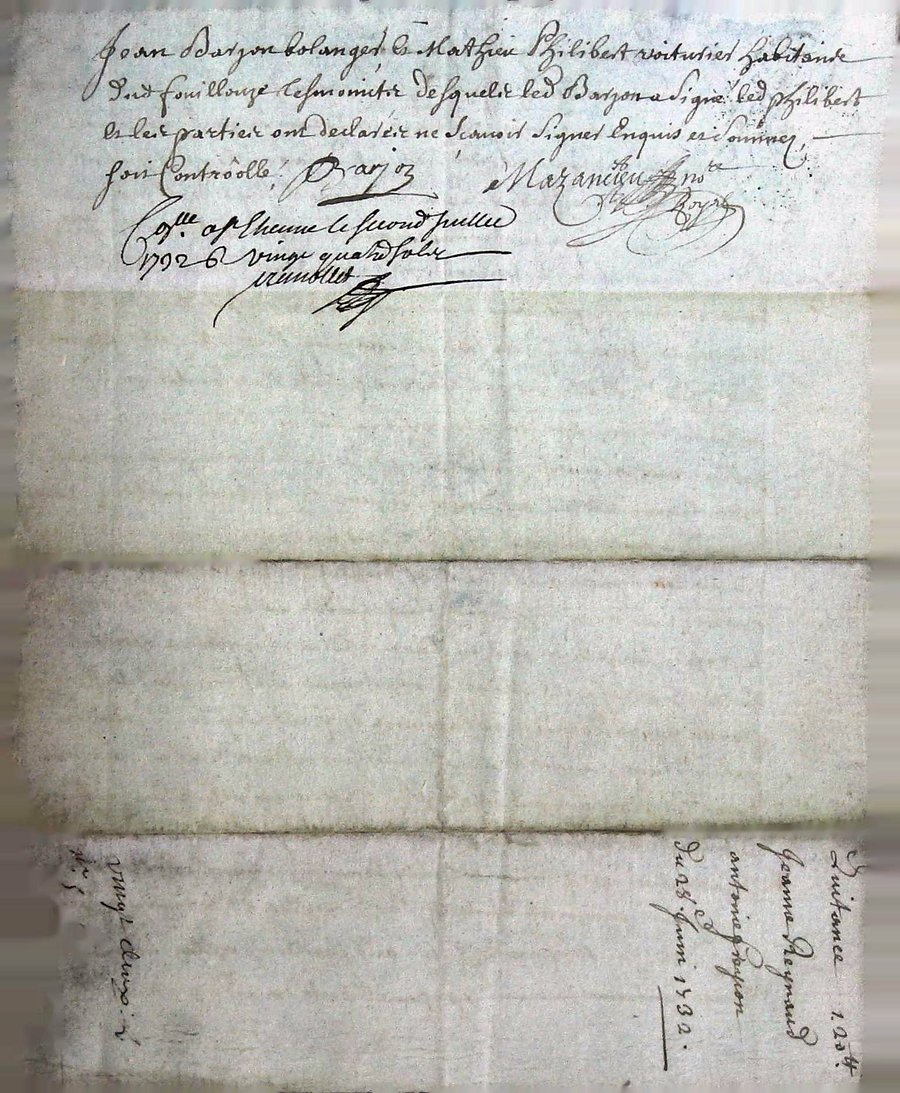 Jean Barjon bolanger, & Mathieu Philibert voiturier habitans
dud fouillouze tesmoints desquels led Barjon a signé led philibert
et les parties ont declarés ne scavoir signer enquis et sommez,
soit Controollé. Barjon Mazancieu no.re
Royal
Con.lle a St Etienne le second juillet
1732 R vingt quatre sols
Quitance 120#.
Jeanne Reynaud
a
antoine
du 28.e Juin 1732.
vingt deux.
n.o 5